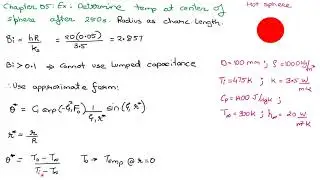 Chapter 05: Ex: Determine temp at center of
sphere after 250s. Radius as charc. length.
Hot sphere
Bi = hR/ks = 20(0.05)/3.5 = 2.857
Bi > 0.1 → Cannot use lumped capacitance
∴ Use approximate form:
θ* = C1 exp(-ζ1²Fo) 1/(ζ1r*) sin(ζ1r*)
r* = r/R
θ* = (To - T∞)/(Ti - T∞) To → Temp @ r=0
D = 100 mm; ρ = 1000 kg/m³
Ti = 475K, k = 3.5 W/m·K
Cp = 1400 J/kgK;
T∞ = 300K; h∞ = 20 W/m²K